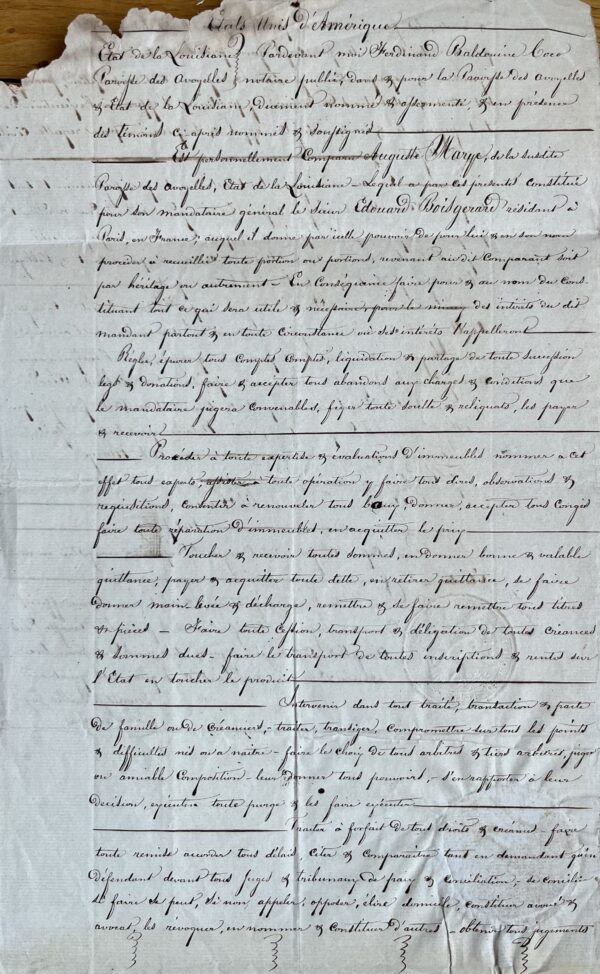 États Unis d'Amérique
État de la Louisiane } Pardevant moi Ferdinand Baldouine Coco
Paroisse des Avoyelles } notaire public, dans & pour la Paroisse des Avoyelles
& État de la Louisiane, Duement nommé & assermenté, & en présence
des témoins ci-après nommés & soussignés
Est personnellement Comparu Auguste Marye, de la susdite
Paroisse des Avoyelles, État de la Louisiane - Lequel a par ces présentes constitué
pour son mandataire général le Sieur Edouard Boisgerard résidant à
Paris, en France, auquel il donne par icelle pouvoir de pour lui & en son nom
procéder à recueillir toute portion ou portions, revenant au dit Comparant soit
par héritage ou autrement - En Conséquence faire pour & au nom du Cons-
tituant tout ce qui sera utile & nécessaire, pour le des intérêts du dit
mandant partout & en toute Circonstance où ses intérêts l'appelleront
Régler, épurer tous Comptes Comptes, liquidation & partage de toute succession
legs & donations, faire & accepter tous abandons aux charges & conditions que
le mandataire jugera convenables, fixer toute soulte & reliquats, les payer
& recevoir
Procéder à toute expertise & évaluations d'immeubles nommer a cet
effet tous experts assister toute opération y faire tous dires, observations &
requisitions, consentir à renouveler tous baux, donner, accepter tous Congés
faire toute réparation d'immeubles, en acquitter le prix
Toucher & recevoir toutes sommes, en donner bonne & valable
quittance, payer & acquitter toute dette, en retirer quittance, se faire
donner main-levée & décharge, remettre & se faire remettre tous titres
& pièces - Faire toute Cession, transport & déligation de toutes Créances
& Sommes dues - faire le transport de toutes inscriptions & rente sur
l'État en toucher le produit
Intervenir dans tout traité, transaction & pacte
de famille ou de Créanciers, - traiter, transiger, compromettre sur tous les points
& difficultés nés ou a naître - faire le choix de tous arbitres & tiers arbitres, juges
ou amiable Compostition - leur donner tous pouvoirs, - s'en rapporter à leur
décision, exécuter toute purge & les faire exécuter
Traiter à forfait de tous droits & créances - faire
toute remise accorder tous délais, citer & comparaître tant en demandant qu'en
défendant devant tous juges & tribunaux de paix & conciliation, - se concilier
se faire se peut, si non appeler, opposer, élire domicile, constituer avoué &
avocat, les révoquer, en nommer & constituer d'autres - obtenir tous jugements